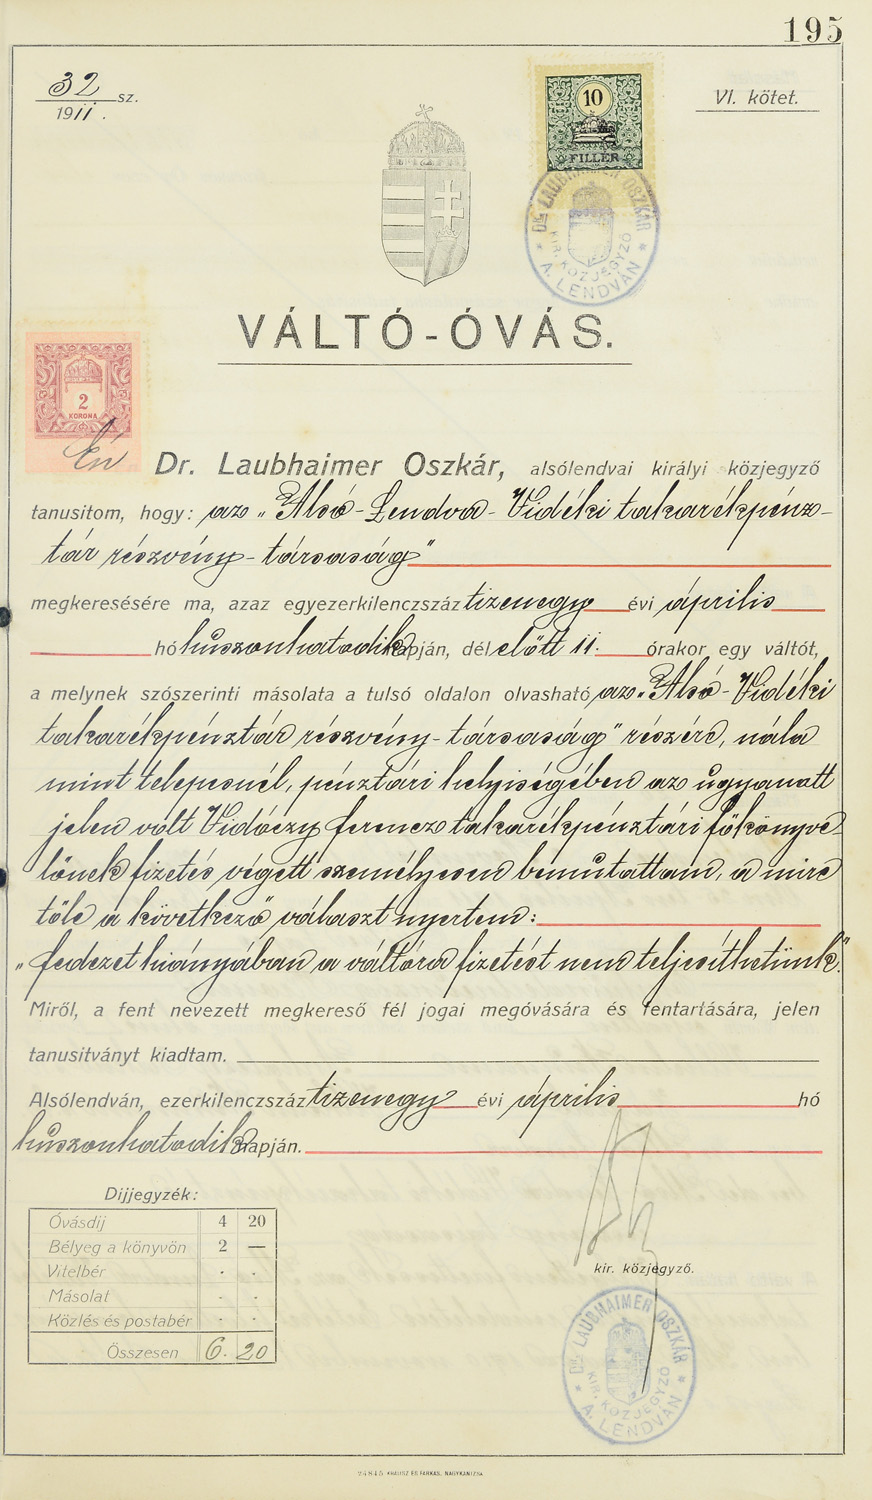 195
32 sz.
1911.
VI. kötet.
10
FILLÉR
Dr. LAUBHAIMER OSZKÁR
KIR. KÖZJEGYZŐ
* A. LENDVÁN *
VÁLTÓ-ÓVÁS.
2
KORONA
Én Dr. Laubhaimer Oszkár, alsólendvai királyi közjegyző
tanusitom, hogy: az „Alsó-Lendva-Vidéki takarékpénz-
tár részvény-társaság"
megkeresésére ma, azaz egyezerkilenczszáz tizenegy évi április
hó huszonhatodik napján, dél előtt 11. órakor egy váltót,
a melynek szószerinti másolata a tulsó oldalon olvasható, az „Alsó-Vidéki
takarékpénztár részvény-társaság" részére, nála
mint telepesnél, pénztári helyiségében az ugyanott
jelen volt Vidóczy Ferencz takarékpénztári főkönyve-
lőnek fizetés végett személyesen bemutattam, a mire
tőle a következő választ nyertem:
„fedezet hiányában a váltóra fizetést nem teljesíthetünk."
Miről, a fent nevezett megkereső fél jogai megóvására és fentartására, jelen
tanusitványt kiadtam.
Alsólendván, ezerkilenczszáz tizenegy évi április hó
huszonhatodik napján.
Dijjegyzék:
Óvásdij 4 20
Bélyeg a könyvön 2 —
Vitelbér . .
Másolat . .
Közlés és postabér . .
Összesen 6. 20
kir. közjegyző.
Dr. LAUBHAIMER OSZKÁR
KIR. KÖZJEGYZŐ
* A. LENDVÁN *
KRAUSZ ÉS FARKAS, NAGYKANIZSA